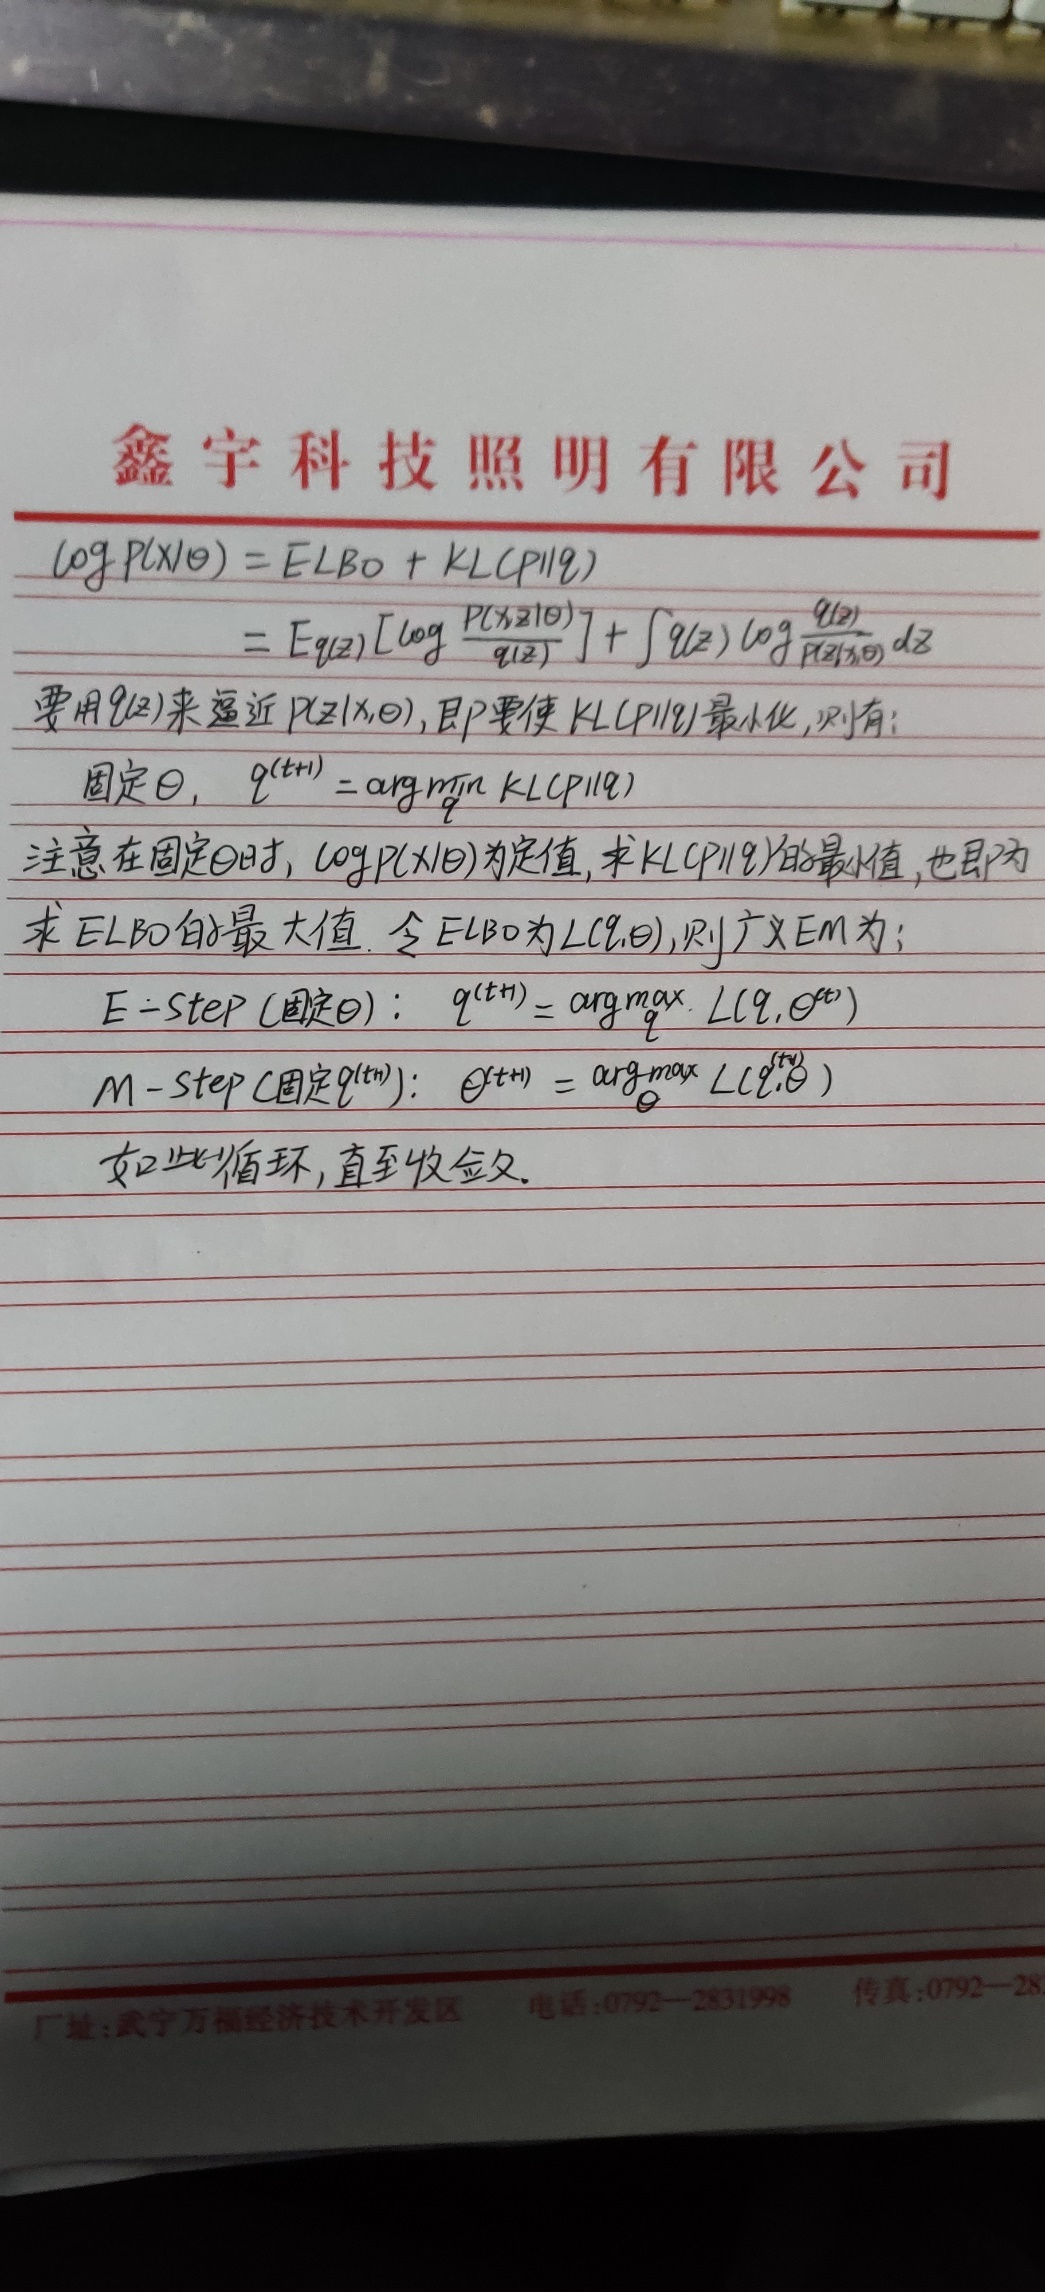 鑫宇科技照明有限公司
log P(x|θ) = ELBO + KL(p||q)
= E_{q(z)} [log \frac{P(x,z|θ)}{q(z)}] + ∫ q(z) log \frac{q(z)}{P(z|x,θ)} dz
要用q(z)来逼近P(z|x,θ),即要使KL(p||q)最小化,则有:
固定θ, q^{(t+1)} = arg min_q KL(p||q)
注意在固定θ时, log P(x|θ)为定值,求KL(p||q)的最小值,也即为
求ELBO的最大值. 令ELBO为L(q,θ),则广义EM为:
E-Step (固定θ): q^{(t+1)} = arg max_q L(q, θ^{(t)})
M-Step (固定q^{(t+1)}): θ^{(t+1)} = arg max_θ L(q^{(t+1)},θ)
如此循环,直至收敛.
厂址:武宁万福经济技术开发区 电话:0792—2831998 传真:0792—28